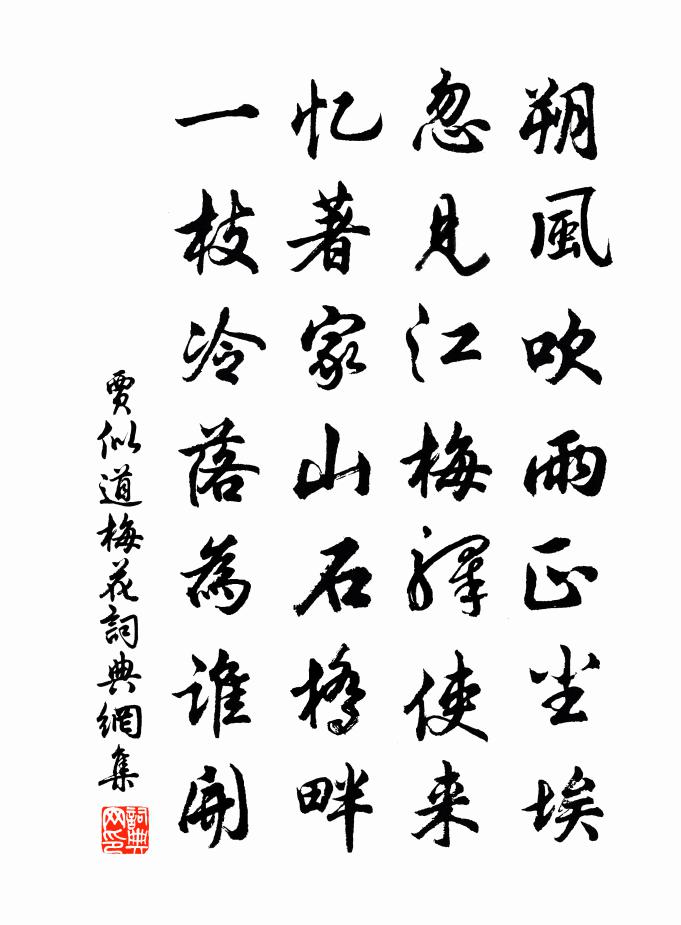 朔風吹雨正尘埃
忽見江梅驛使来
忆著家山石橋畔
一枝冷落為誰開
賈似道梅花詞典網集
詞典網印